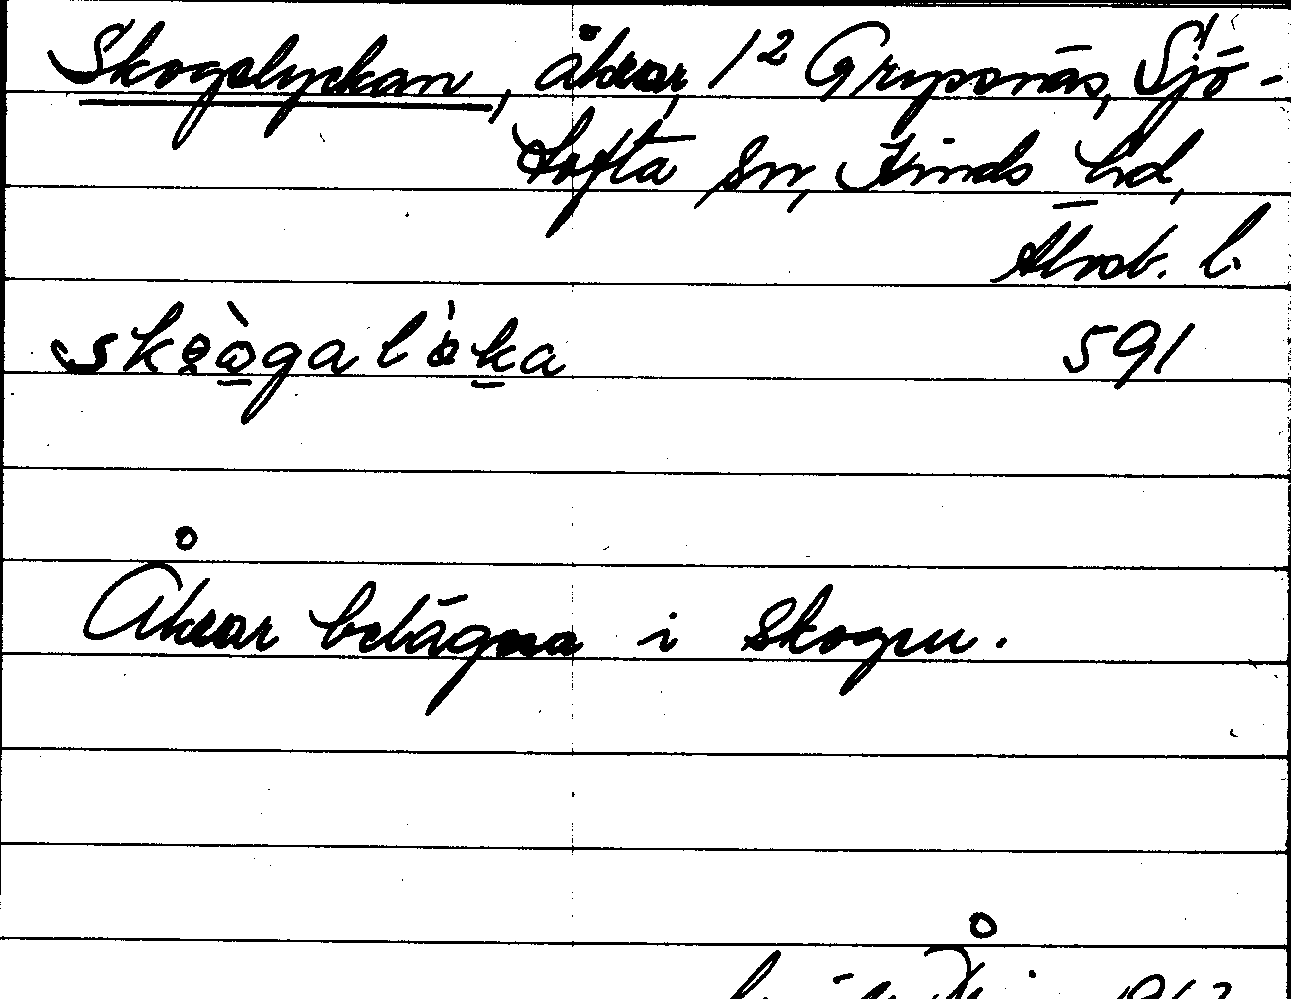 Skogslyckan, åkrar, 1² Grypsnäs, Sjö-
tofta sn, Kinds hd,
Älvsb. l.
skòǫgalɵ̀ka 591
Åkrar belägna i skogen.